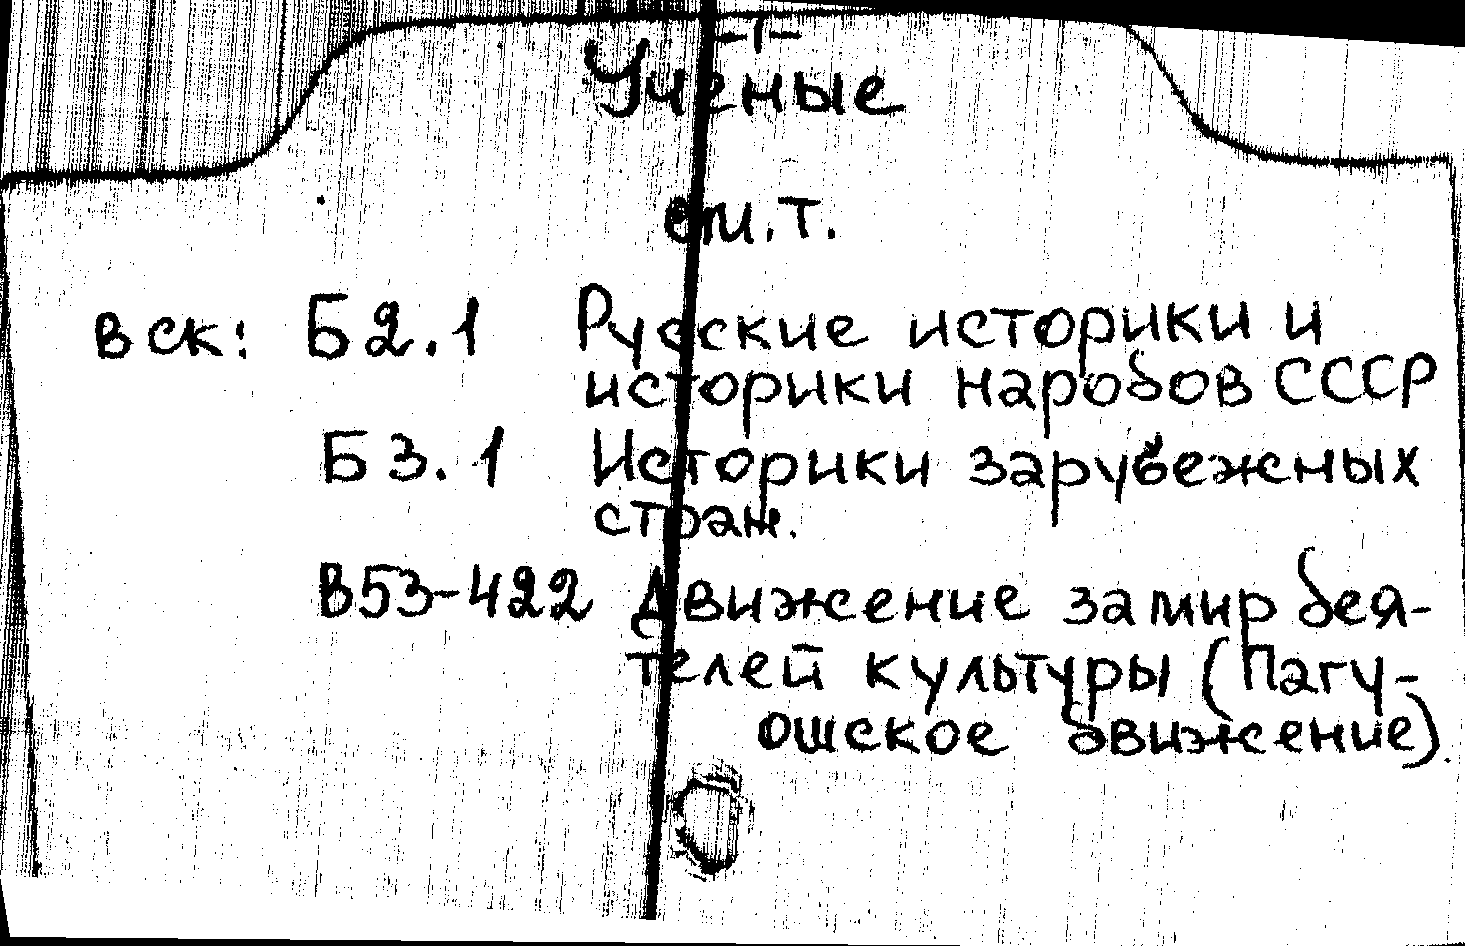 -1-
Ученые
см.т.
в ск: Б2.1 Русские историки и
историки народов СССР
Б3.1 Историки зарубежных
стран.
В53-422 Движение за мир дея-
телей культуры (Пагу-
ошское движение).